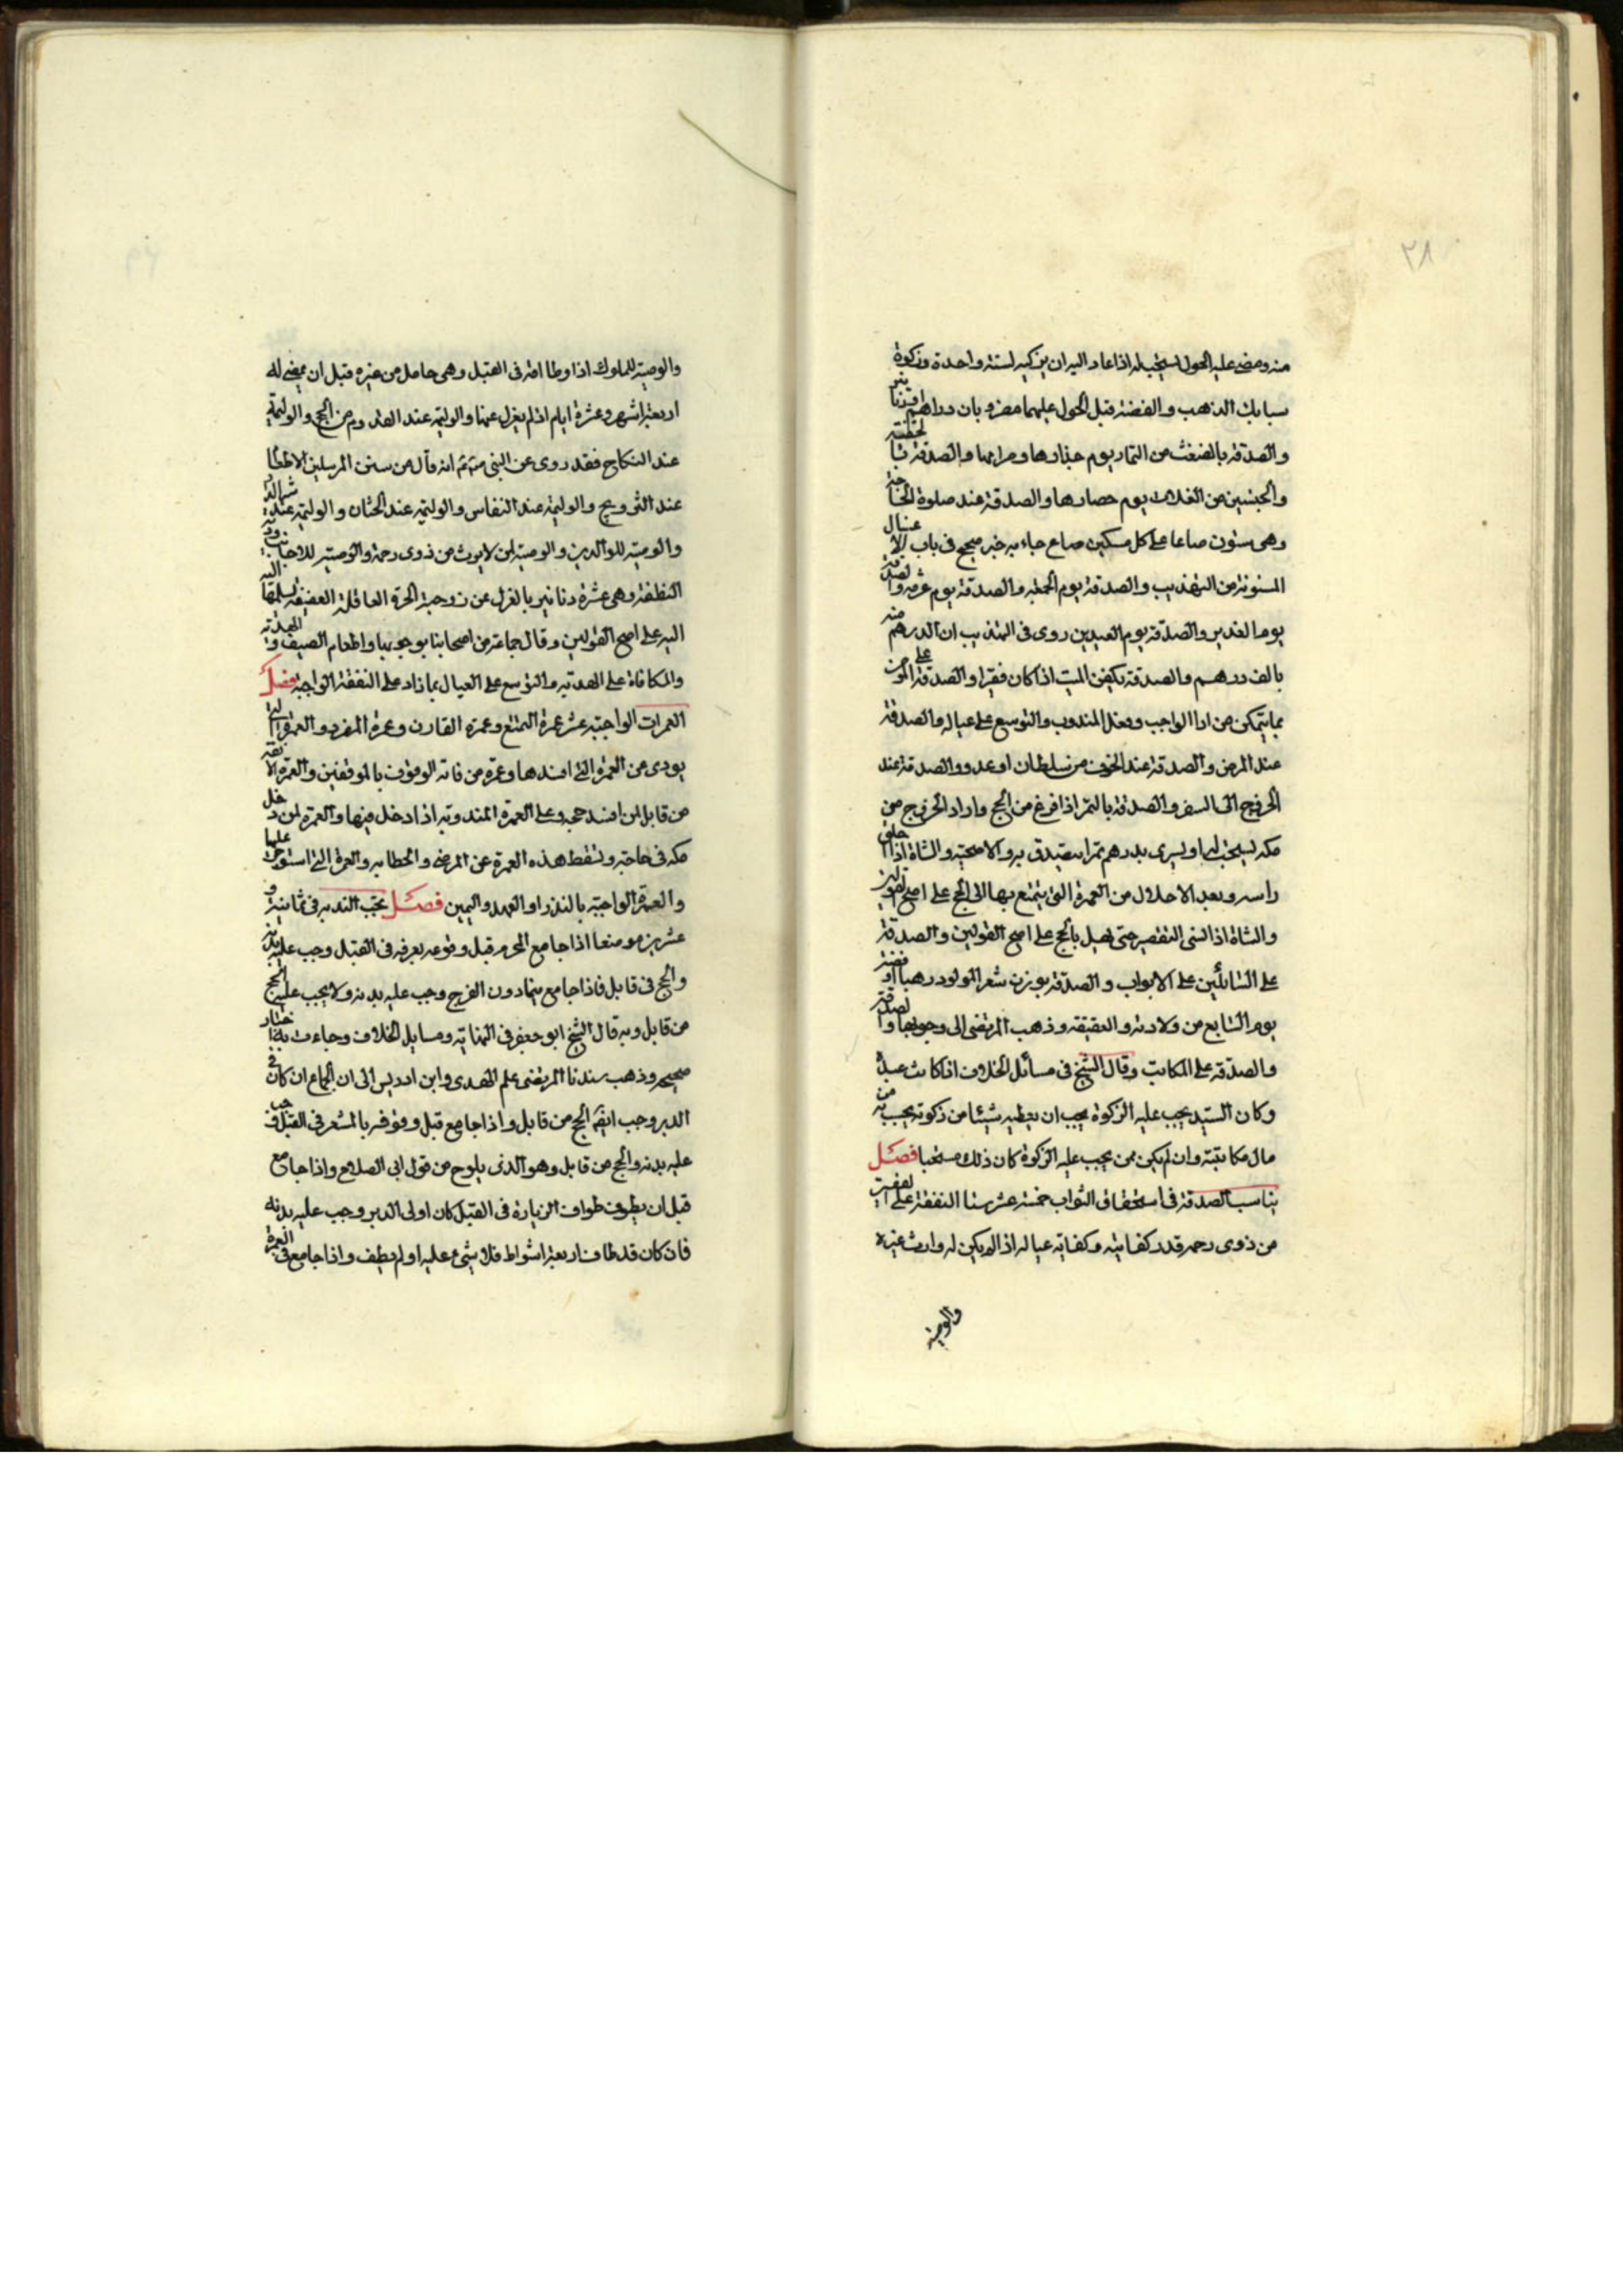 ٢٨
منه ومضى عليه الحول يستحب له اذا عاد اليه ان يزكيه لسنة واحدة وزكوة
سبايك الذهب والفضة قبل الحول عليهما مضروبان دراهم او دنانير
والصدقة بالضغث من الثمار يوم جذاذها وصرامها والصدقة بالحفنة
والحفنتين من الغلات يوم حصادها والصدقة عند صلوة
وهى ستون صاعا على كل مسكين صاع جاء به خبر صحيح فى باب الاغسال
المسنونة من التهذيب والصدقة يوم الجمعة والصدقة يوم عرفة والصدقة
يوم الغدير والصدقة يوم العيدين روى فى التهذيب ان الدرهم منه
بالف درهم والصدقة بكفن الميت اذا كان فقيرا والصدقة على المؤمن
بما يتمكن من ادا الواجب وفعل المندوب والتوسع على عياله والصدقة
عند المرض والصدقة عند الخوف من سلطان او عدو والصدقة عند
الخروج الى السفر والصدقة بالتمر اذا فرغ من الحج واراد الخروج من
مكه يستحب له ان يشترى بدرهم تمرا يتصدق به والاضحية والشاة اذا حلق
راسه وبعد الاحلال من العمرة التى يتمتع بها الى الحج على اصح القولين
والشاة اذا نسى التقصير حتى يهل بالحج على اصح القولين والصدقة
على السائلين على الابواب والصدقة بوزن شعر المولود ذهبا او فضة
يوم السابع من ولادته والعقيقه وذهب المرتضى الى وجوبها والصدقة
والصدقه على المكاتب وقال الشيخ فى مسائل الخلاف اذا كاتب عبده
وكان السيد يجب عليه الزكوة يجب ان يعطيه شيئا من زكوته يحسب به من
مال مكاتبته وان لم يكن ممن يجب عليه الزكوة كان ذلك مستحبا فصل
يناسب الصدقة فى استحقاق الثواب خمسة عشر شيئا النفقة على الفقير
من ذوى رحمه قدر كفايته وكفاية عياله اذا لم يكن له وارث غيره
والوصية
والوصية للملوك اذا وطا امة فى القبل وهى حامل من غيره قبل ان يمضى له
اربعة اشهر وعشرة ايام اذا لم يعزل عنها والوليمة عند القدوم من الحج والوليمة
عند النكاح فقد روى عن النبى انه قال من سنن المرسلين الاطعام
عند التزويج والوليمة عند النفاس والوليمة عند الختان والوليمة عند شرا الدار
والوصية للوالدين والوصية لمن لا يورث من ذوى رحمه والوصية للاجانب ودية
النطفة وهى عشرة دنانير بالعزل عن زوجته الحرة العاقلة العفيفة يسلمها اليه
اليه على اصح القولين وقال جماعة من اصحابنا بوجوبها واطعام الضيف والهدية
والمكافاة على الهدية والتوسع على العيال بما زاد على النفقة الواجبة فصل
العمرات الواجبة عشر عمرة التمتع وعمرة القارن وعمرة المفرد والعمرة التى
يودى عن العمرة التى افسدها وعمرة من فاته الوقوف بالموقفين والعمرة
من قابل لمن افسد حجه وعلى العمرة المندوبة اذا دخل فيها والعمرة لمن دخل
مكه فى حاجة وتسقط هذه العمرة عن المرضى والحطابه والعمرة التى استوجر عليها
والعمرة الواجبة بالنذر او العهد واليمين فصل يجب البدنه فى ثمانية و
عشرين موضعا اذا جامع المحرم قبل وقوعه بعرفه فى القبل وجب عليه بدنة
والحج فى قابل فاذا جامع فيما دون الفرج وجب عليه بدنة ولا يجب عليه الحج
من قابل وبه قال الشيخ ابو جعفر فى النهاية ومسايل الخلاف وجاءت به اخبار
صحيحه وذهب سيدنا المرتضى علم الهدى وابن ادريس الى ان الجماع ان كان فى
الدبر وجب ايضا الحج من قابل واذا جامع قبل وقوفه بالمشعر فى القبل وجب
عليه بدنة والحج من قابل وهو الذى يلوح من قول ابى الصلاح واذا جامع
قبل ان يطوف طواف الزيارة فى القبل كان او فى الدبر وجب عليه بدنة
فان كان قد طاف اربعة اشواط فلا شىء عليه او لم يطف واذا جامع فى العمرة